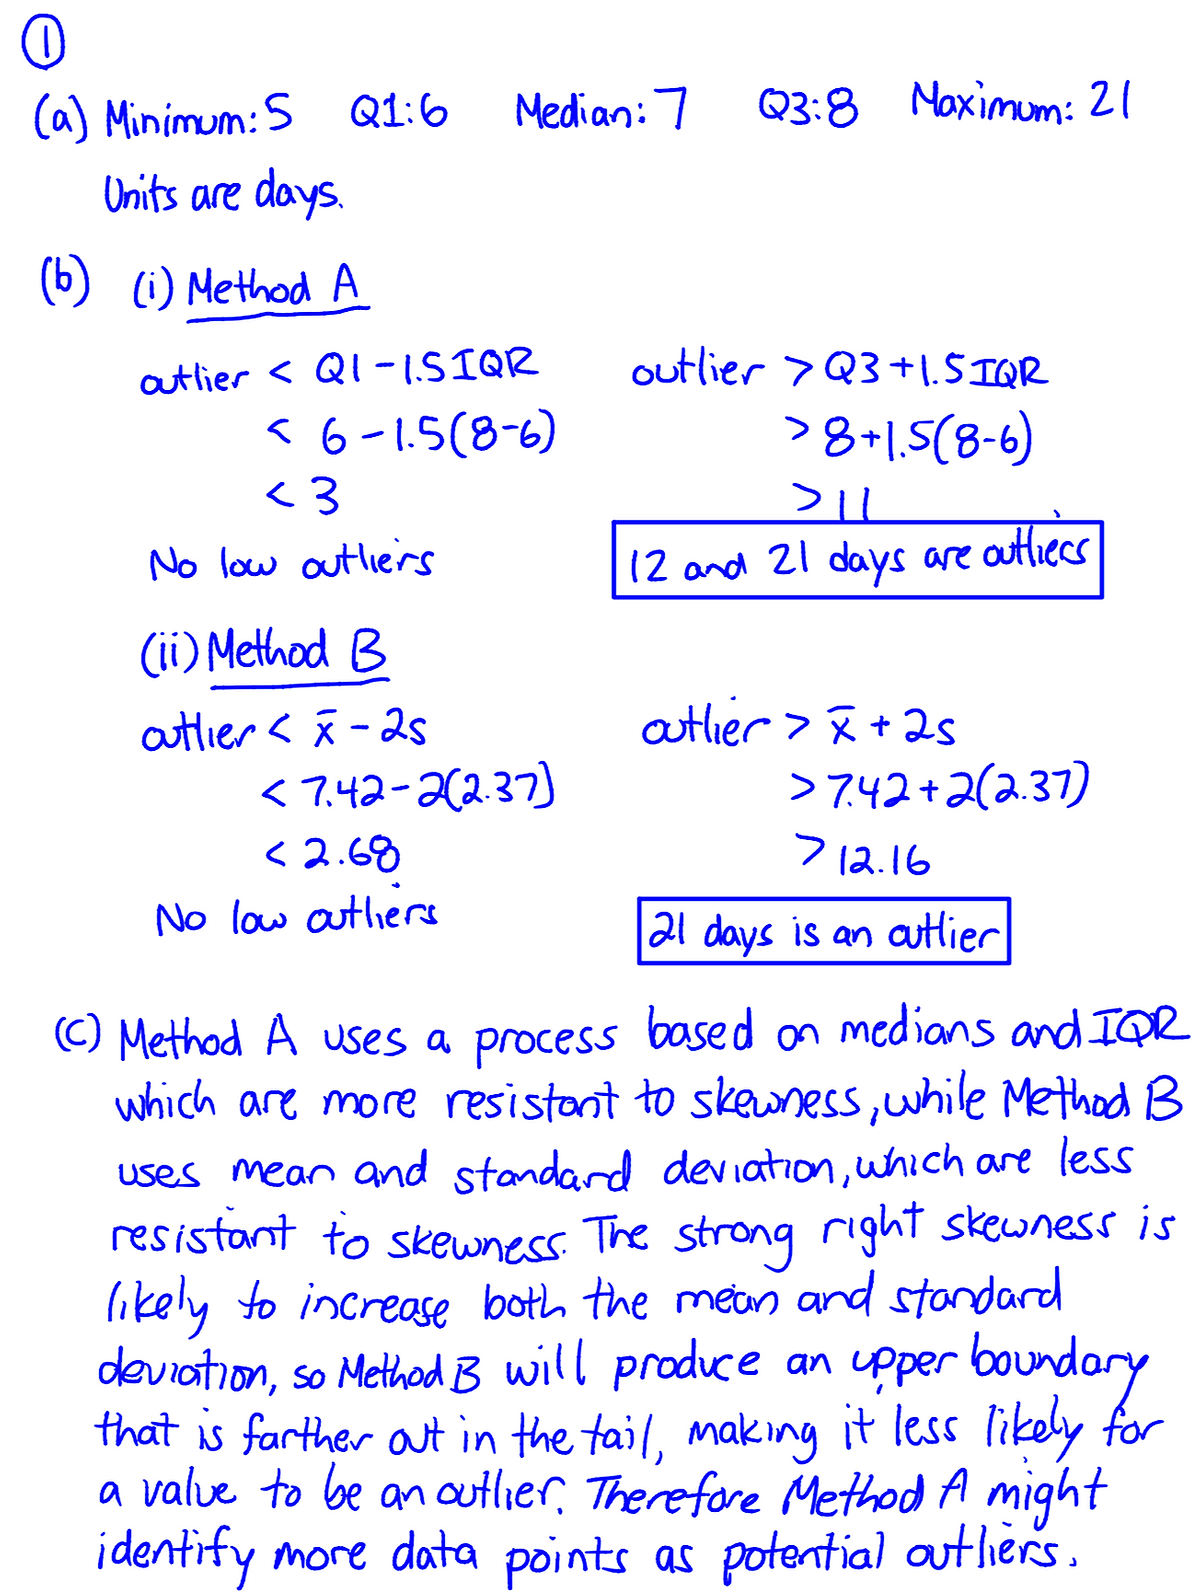 ①
(a) Minimum: 5 Q1: 6 Median: 7 Q3: 8 Maximum: 21
Units are days.
(b) (i) Method A
outlier < Q1 - 1.5 IQR outlier > Q3 + 1.5 IQR
< 6 - 1.5(8-6) > 8 + 1.5(8-6)
< 3 > 11
No low outliers 12 and 21 days are outliers
(ii) Method B
outlier < x̄ - 2s outlier > x̄ + 2s
< 7.42 - 2(2.37) > 7.42 + 2(2.37)
< 2.68 > 12.16
No low outliers 21 days is an outlier
(c) Method A uses a process based on medians and IQR
which are more resistant to skewness, while Method B
uses mean and standard deviation, which are less
resistant to skewness. The strong right skewness is
likely to increase both the mean and standard
deviation, so Method B will produce an upper boundary
that is farther out in the tail, making it less likely for
a value to be an outlier. Therefore Method A might
identify more data points as potential outliers.